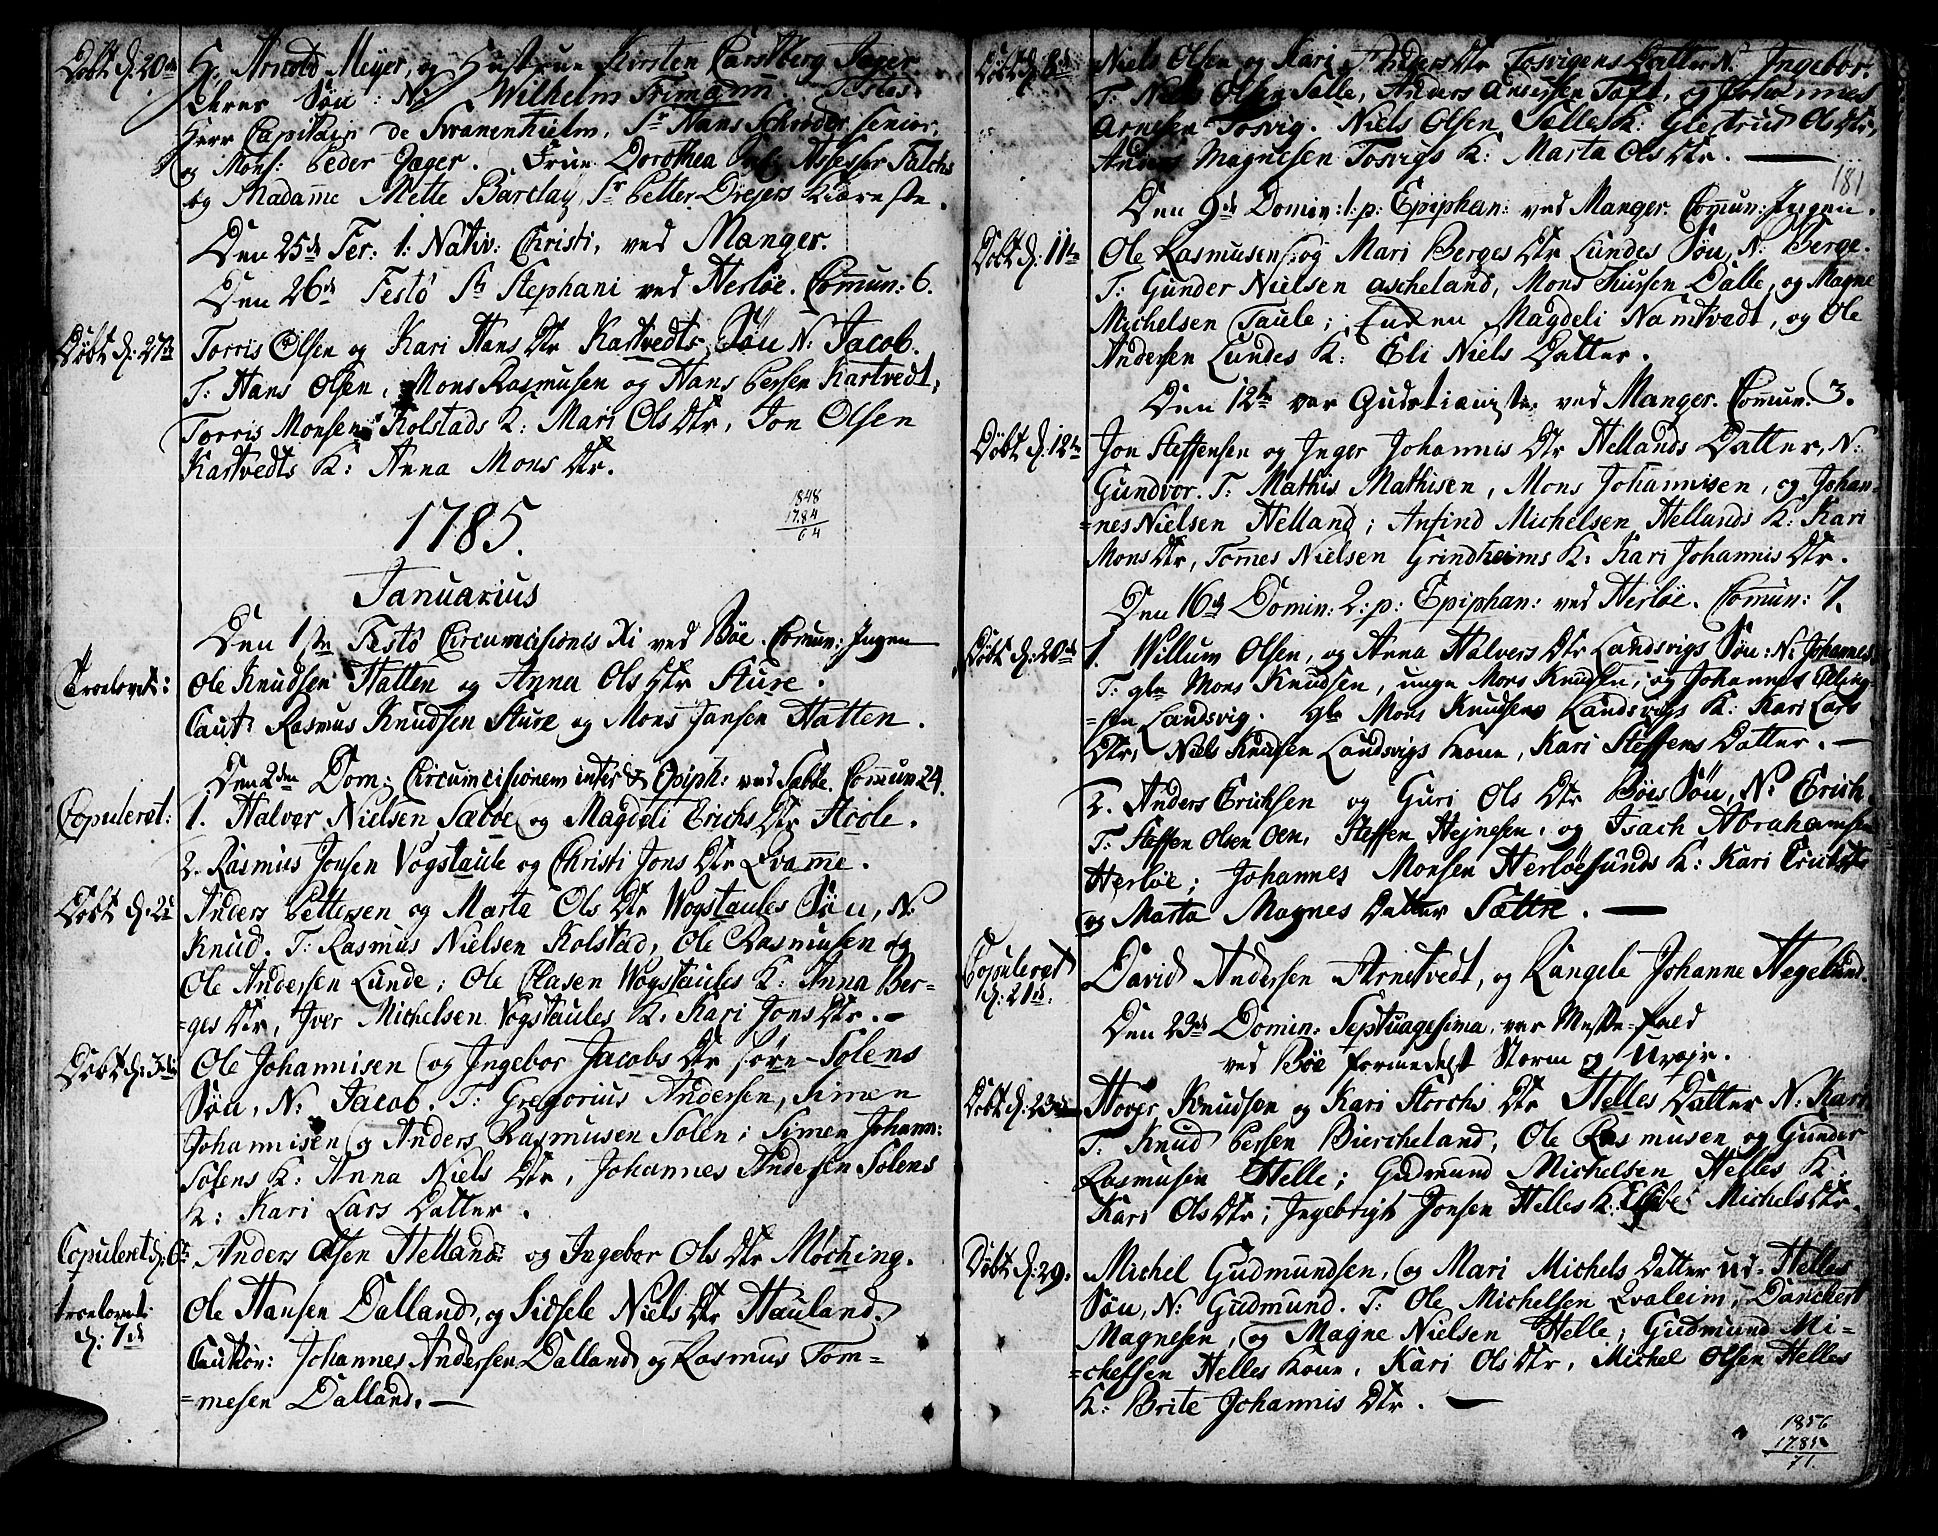 Døbt d: 20de Hr. Arnold Meyer, og Hustrue Kirsten Carstberg Jager
deres Søn: N: Wilhelm Frimann. Testes
Herr Capitain de Svanenhielm, Sr Hans Schrøder senior,
og Mons: Peder Jæger. Frue Dorothea Assessor Falchs
og Madame Mette Barclay, Sr Petter Drejers Kiæreste.
Den 25de Fer: 1: Nativ: Christi, ved Manger.
Den 26de Festo St Stephani ved Herløe. Comun: 6.
Døbt d: 27de Torris Olsen og Kari Hans Dtr Kartvedts Søn N: Jacob.
T: Hans Olsen, Mons Rasmusen og Hans Persen Kartvedt,
Torris Monsen Kolstads K: Mari Ols Dtr, Jon Olsen
Kartvedts K: Anna Mons Dtr.
1848
1784
64
1785.
Januarius
Den 1ste Festo Circumcisiones Xi ved Bøe. Comun: Ingen
Troelovet: Ole Knudsen Hatten og Anna Ols Dtr Sture.
Caut: Rasmus Knudsen Sture og Mons Jansen Hatten.
Den 2den Dom: Circumcisionem inter & Epiph: ved Sæbøe. Comun 24.
Copuleret: 1. Halvor Nielsen Sæbøe og Magdeli Erichs Dtr Hoole.
2. Rasmus Jonsen Vogstaule og Christi Jons Dtr Qvamme.
Døbt d: 2de Anders Pettersen og Marta Ols Dtr Wogstaules Søn, N:
Knud. T: Rasmus Nielsen Kolstad, Ole Rasmusen og
Ole Andersen Lunde; Ole Clasen Wogstaules K: Anna Ber-
=ges Dtr, Iver Michelsen Vogstaules K: Kari Jons Dtr.
Døbt d: 3die Ole Johannisen og Ingebor Jacobs Dtr Søre-Solens
Søn, N: Jacob. T: Gregorius Andersen, Simen
Johannisen og Anders Rasmusen Solen; Simen Johann:
Solens K: Anna Niels Dtr, Johannes Andersen Solens
K: Kari Lars Datter.
Copuleret d: 6te Anders Olsen Helland og Ingebor Ols Dtr Møching.
troelovet d: 7de Ole Hansen Dalland, og Sidsele Niels Dtr Hauland.
Cautión: Johannes Andersen Dalland og Rasmus Tom=
=mesen Dalland.
Døbt d: 8de Niels Olsen og Kari Anders Dtr Tosvigens Datter N: Ingebor.
T: Niels Olsen Salle, Anders Andersen Toft, og Johannes
Arnesen Tosvig. Niels Olsen Sælles K: Giertrud Ols Dtr,
Anders Magnesen Tosvigs K: Marta Ols Dtr.
181
Den 9de Domin: 1: p: Epiphan: ved Manger. Comun: Ingen.
Døbt d: 11te Ole Rasmusen og Mari Berges Dtr Lundes Søn, N: Berge.
T: Gunder Nielsen Ascheland, Mons Dalle, og Magne
Michelsen Taule; Enken Magdeli Namtvedt, og Ole
Andersen Lundes K: Eli Niels Datter.
Den 12te var Gudstieniste ved Manger. Comun. 3.
Døbt d: 12te Jon Steffensen og Inger Johannis Dtr Hellands Datter, N:
Gundvor. T: Mathis Mathisen, Mons Johannisen, og Johan-
=nes Nielsen Helland; Anfind Michelsen Hellands K: Kari
Mons Dtr, Tomes Nielsen Grindheims K: Kari Johannis Dtr.
Den 16de Domin: 2: p: Epiphan: ved Herløe. Comun: 7.
Døbt d: 20de 1. Willum Olsen, og Anna Halvers Dtr Landsvigs Søn: N: Johannes
T: gle Mons Knudsen, unge Mons Knudsen, og Johannes Elling-
=sen Landsvig. gle Mons Knudsens Landsvigs K: Kari Lars
Dtr, Niels Knudsen Landsvigs Kone, Kari Steffens Datter.
2. Anders Erichsen og Guri Ols Dtr Bøes Søn, N: Erich,
T: Steffen Olsen Oen, Steffen Hejnesen, og Isach Abrahamsen
Herløe; Johannes Monsen Herløesunds K: Kari Erichs Dtr
og Marta Magnes Datter Sættre.
Copuleret d: 21de. David Andersen Arnetvedt, og Rangele Johanne Hegelund.
Den 23de Domin: Septuagesima, var Messe-fald
ved Bøe formedelst Storm og Uvejr.
Døbt d: 23de Knudsen og Kari Storchs Dtr Helles Datter N: Kari
T: Knud Persen Biercheland, Ole Rasmusen og Gunder
Rasmusen Helle; Gudmund Michelsen Helles K:
Kari Ols Dtr; Ingebrigt Jonsen Helles K: Michels Dtr.
Døbt d: 29. Michel Gudmundsen, og Mari Michels Datter ud-Helles
Søn, N: Gudmund. T: Ole Michelsen Qvaleim, Danckert
Magnesen, og Magne Nielsen Helle; Gudmund Mi-
=chelsen Helles Kone, Kari Ols Dtr, Michel Olsen Helles
K: Brite Johannis Dtr.
1856
1785
71.